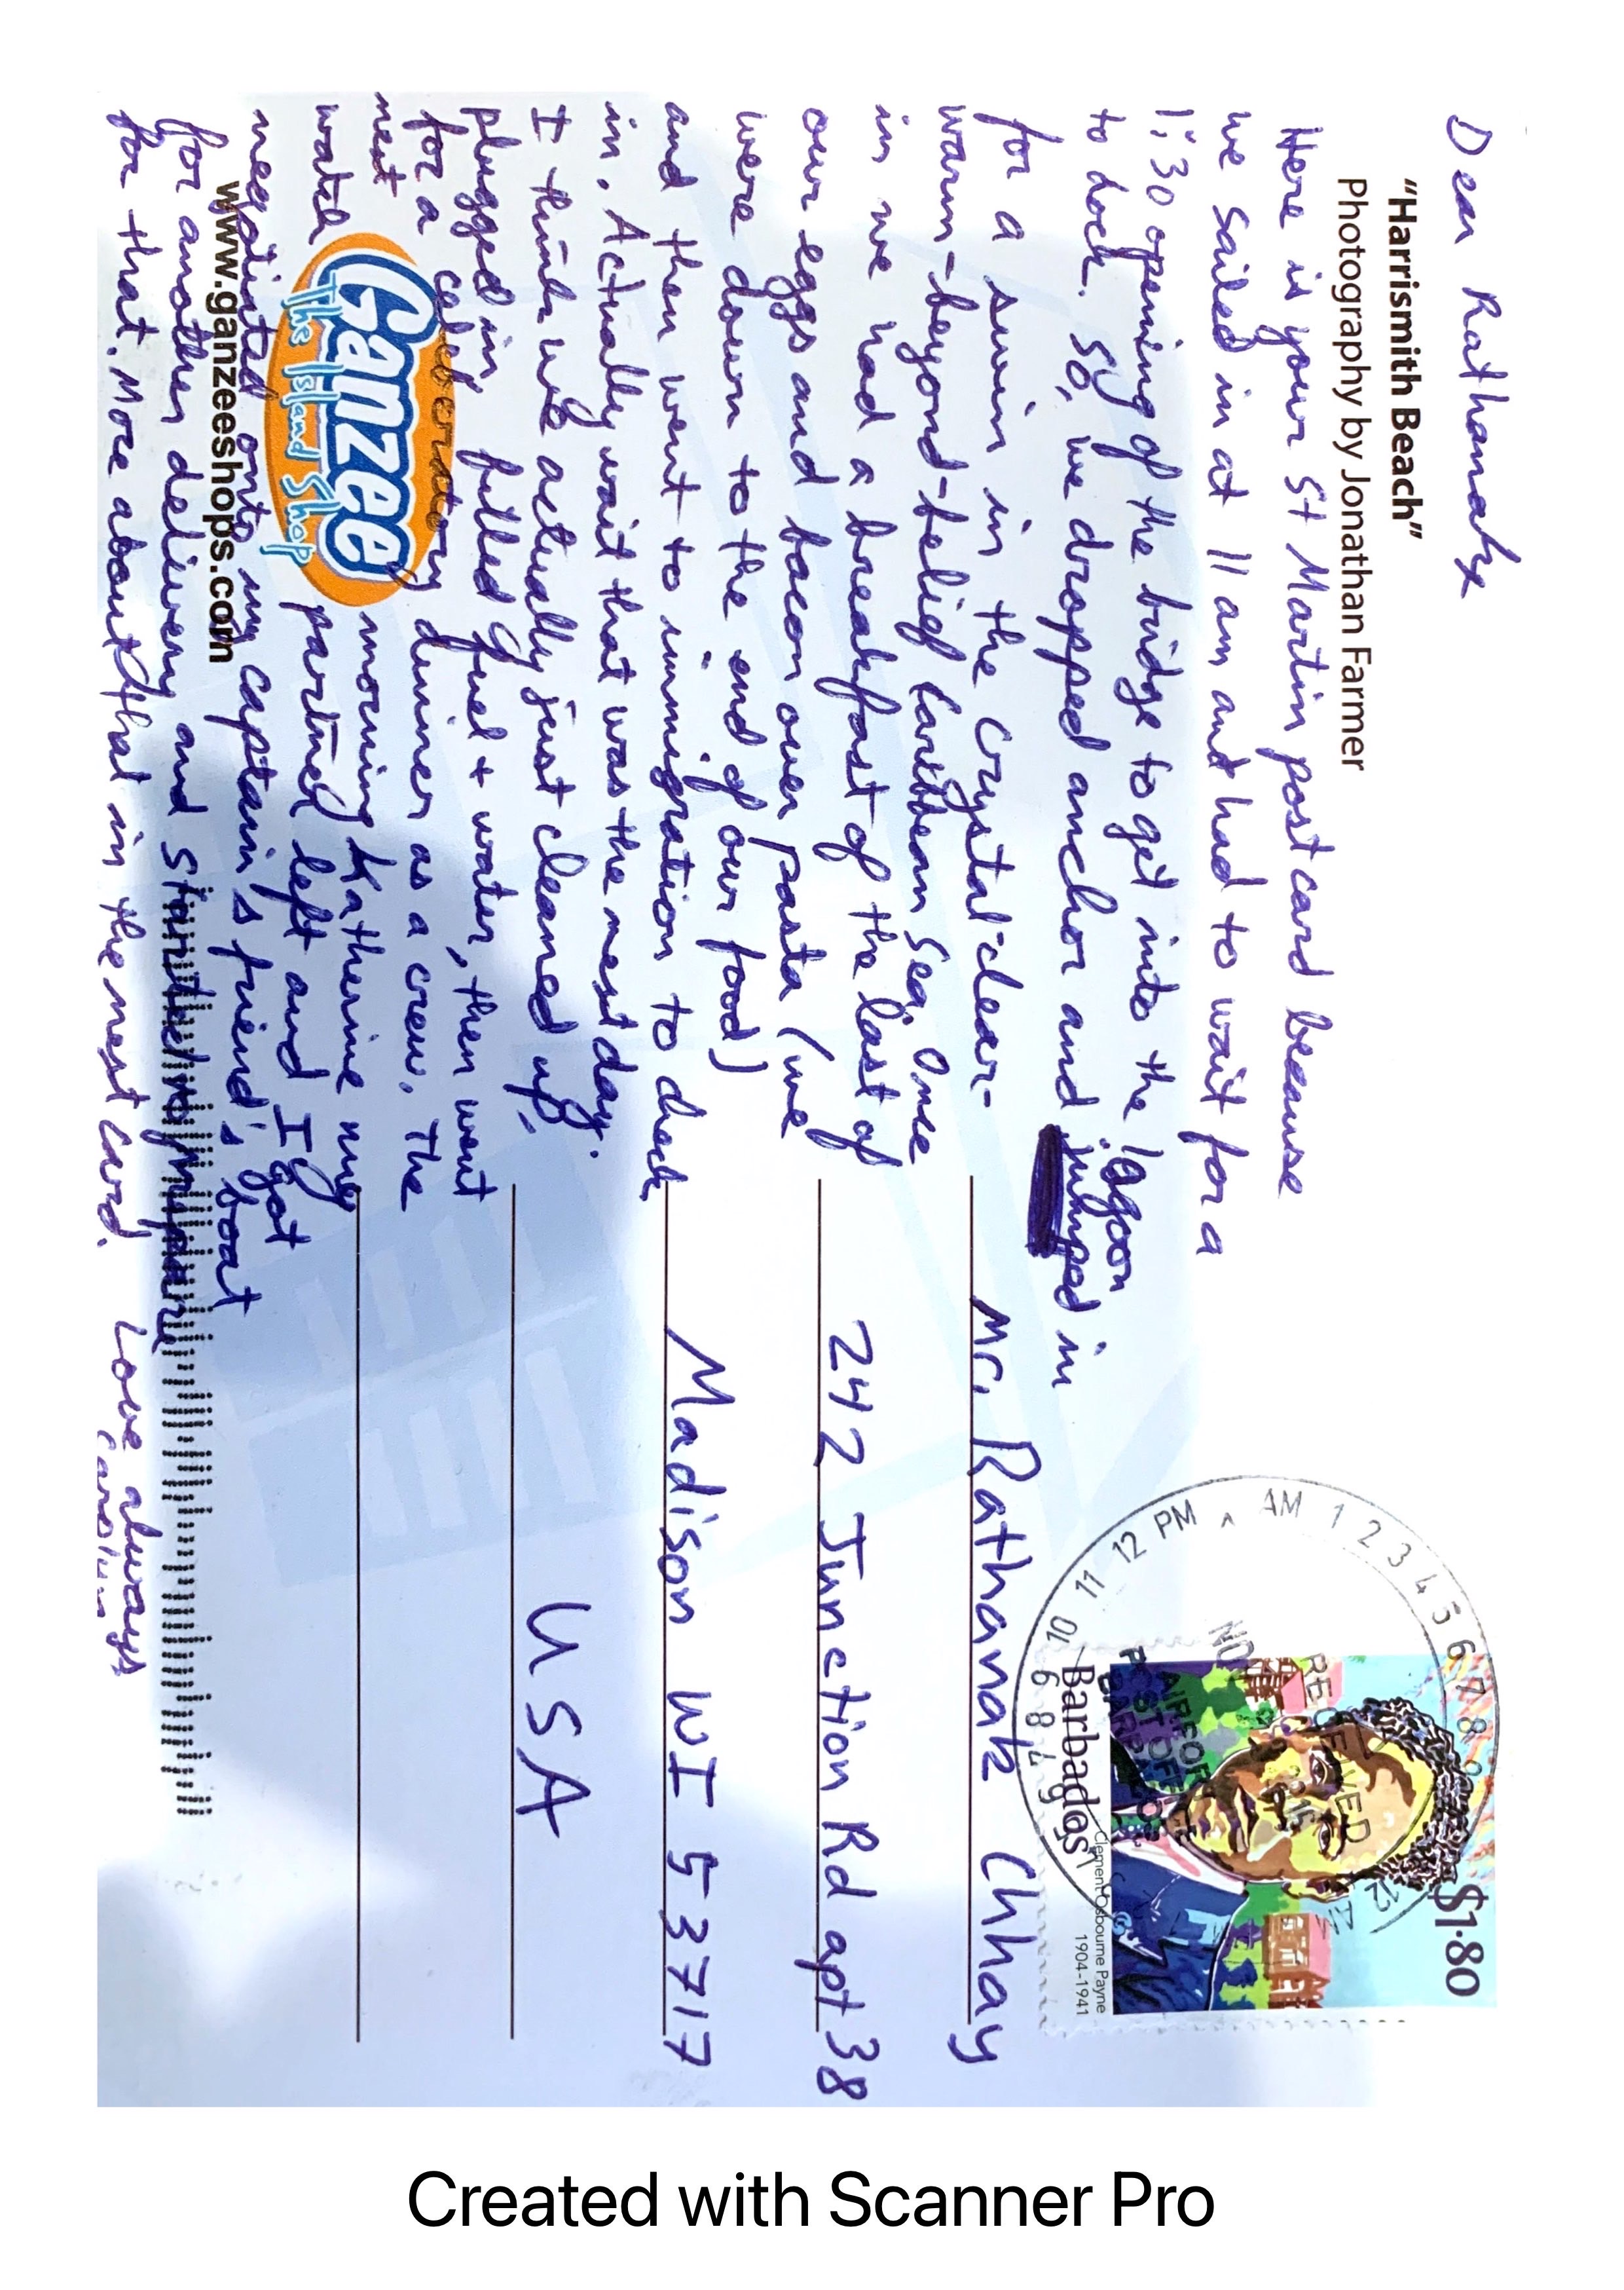 Dear Rathanak
"Harrismith Beach"
Photography by Jonathan Farmer
Here is your St Martin postcard because
we sailed in at 11 am and had to wait for a
1:30 opening of the bridge to get into the lagoon
to dock. So, we dropped anchor and jumped in
for a swim in the crystal-clear-
warm-beyond-belief Caribbean Sea. Once
in we had a breakfast of the last of
our eggs and bacon over pasta (we
were down to the end of our food)
and then went to immigration to check
in. Actually wait that was the next day.
I think we actually just cleaned up,
plugged in, filled fuel + water, then went
for a celebratory dinner as a crew. The
next morning Katherine my
watch partner left and I got
negotiated onto my captain's friend's boat
for another delivery and started to prepare
for that. More about that in the next card.
Love always
Ganzee
The Island Shop
www.ganzeeshops.com
Mr. Rathanak Chhay
242 Junction Rd apt 38
Madison WI 53717
USA
$1.80
Barbados
Clement Osbourne Payne
1904-1941
AM 1 2 3 4 5 6 7 8 9 10 11 12 PM
Created with Scanner Pro